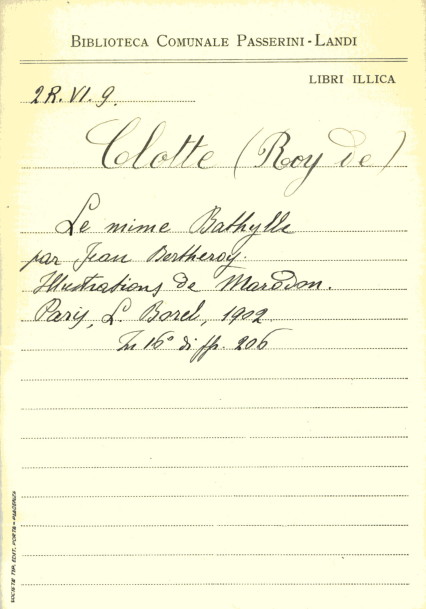 BIBLIOTECA COMUNALE PASSERINI-LANDI
LIBRI ILLICA
2R.VI.9.
Clotte (Roy de)
Le mime Bathylle
par Jean Bertheroy.
Illustrations de Marodon.
Paris, L. Borel, 1902
In 16° di pp. 206
SOCIETÀ TIP. EDIT. PORTA - PIACENZA